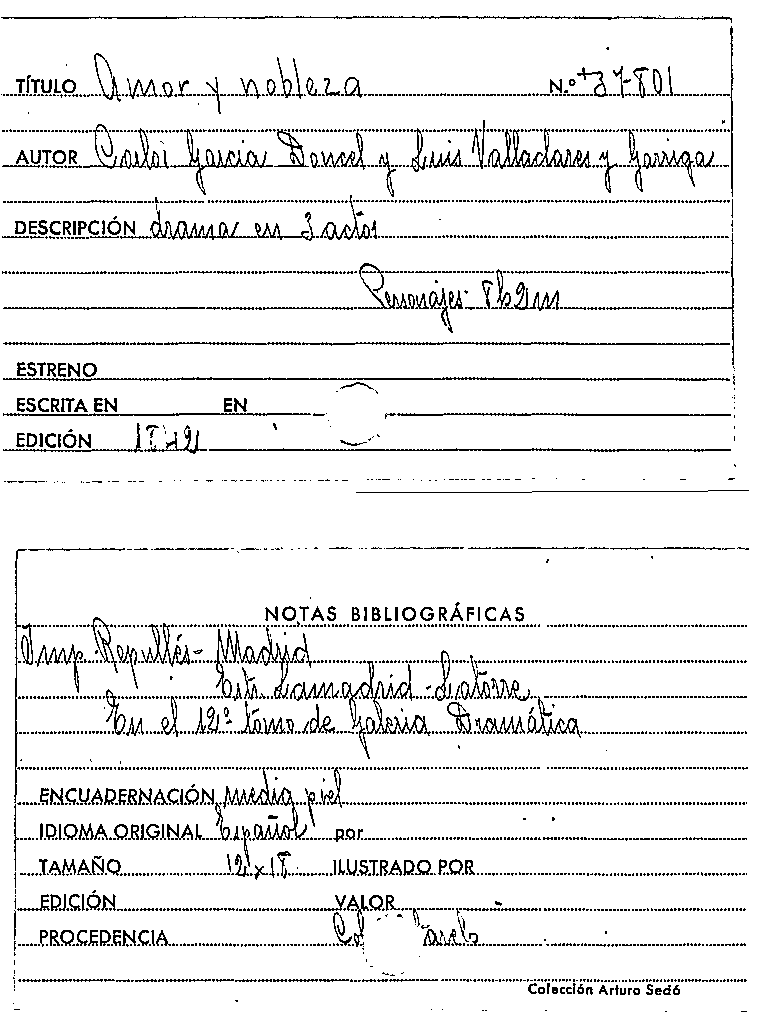 TÍTULO Amor y nobleza N.º 37-801
AUTOR Carlos García Doncel y Luis Valladares y Garriga
DESCRIPCIÓN drama en 3 actos
Personajes: 8h2m
ESTRENO
ESCRITA EN EN
EDICIÓN 1842
NOTAS BIBLIOGRÁFICAS
Imp. Repullés - Madrid
Estr. Lamadrid - Latorre
En el 12º tomo de Galeria Dramática
ENCUADERNACIÓN media piel
IDIOMA ORIGINAL Español por
TAMAÑO 12x18 ILUSTRADO POR
EDICIÓN VALOR
PROCEDENCIA
Colección Arturo Sedó